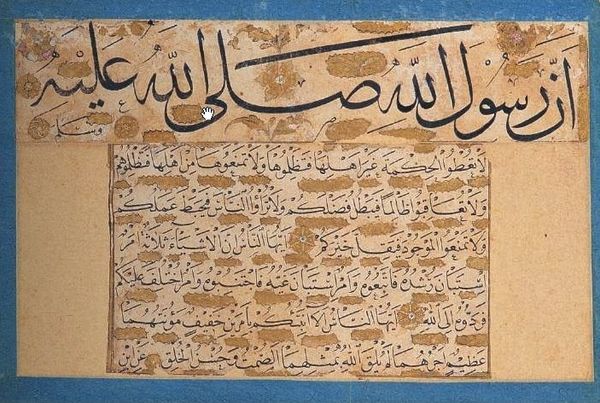 ان رسول الله صلى الله عليه وسلم
لا تعطوا الحكمة غير اهلها فتظلموها ولا تمنعوها من اهلها فتظلموهم
ولا تعاقبوا ظالما فيبطل فضلكم ولا تراؤا الناس فيحبط عملكم
ولا تمنعوا الموجود فيقل خيركم ايها الناس ان الاشياء ثلاثة امر
استبان رشده فاتبعوه وامر استبان غيه فاجتنبوه وامر اختلف عليكم
فردوه الى الله ايها الناس الا انبئكم بامرين خفيف مؤنتهما
عظيم اجرهما لم يلق الله بمثلهما الصمت وحسن الخلق عن ابن